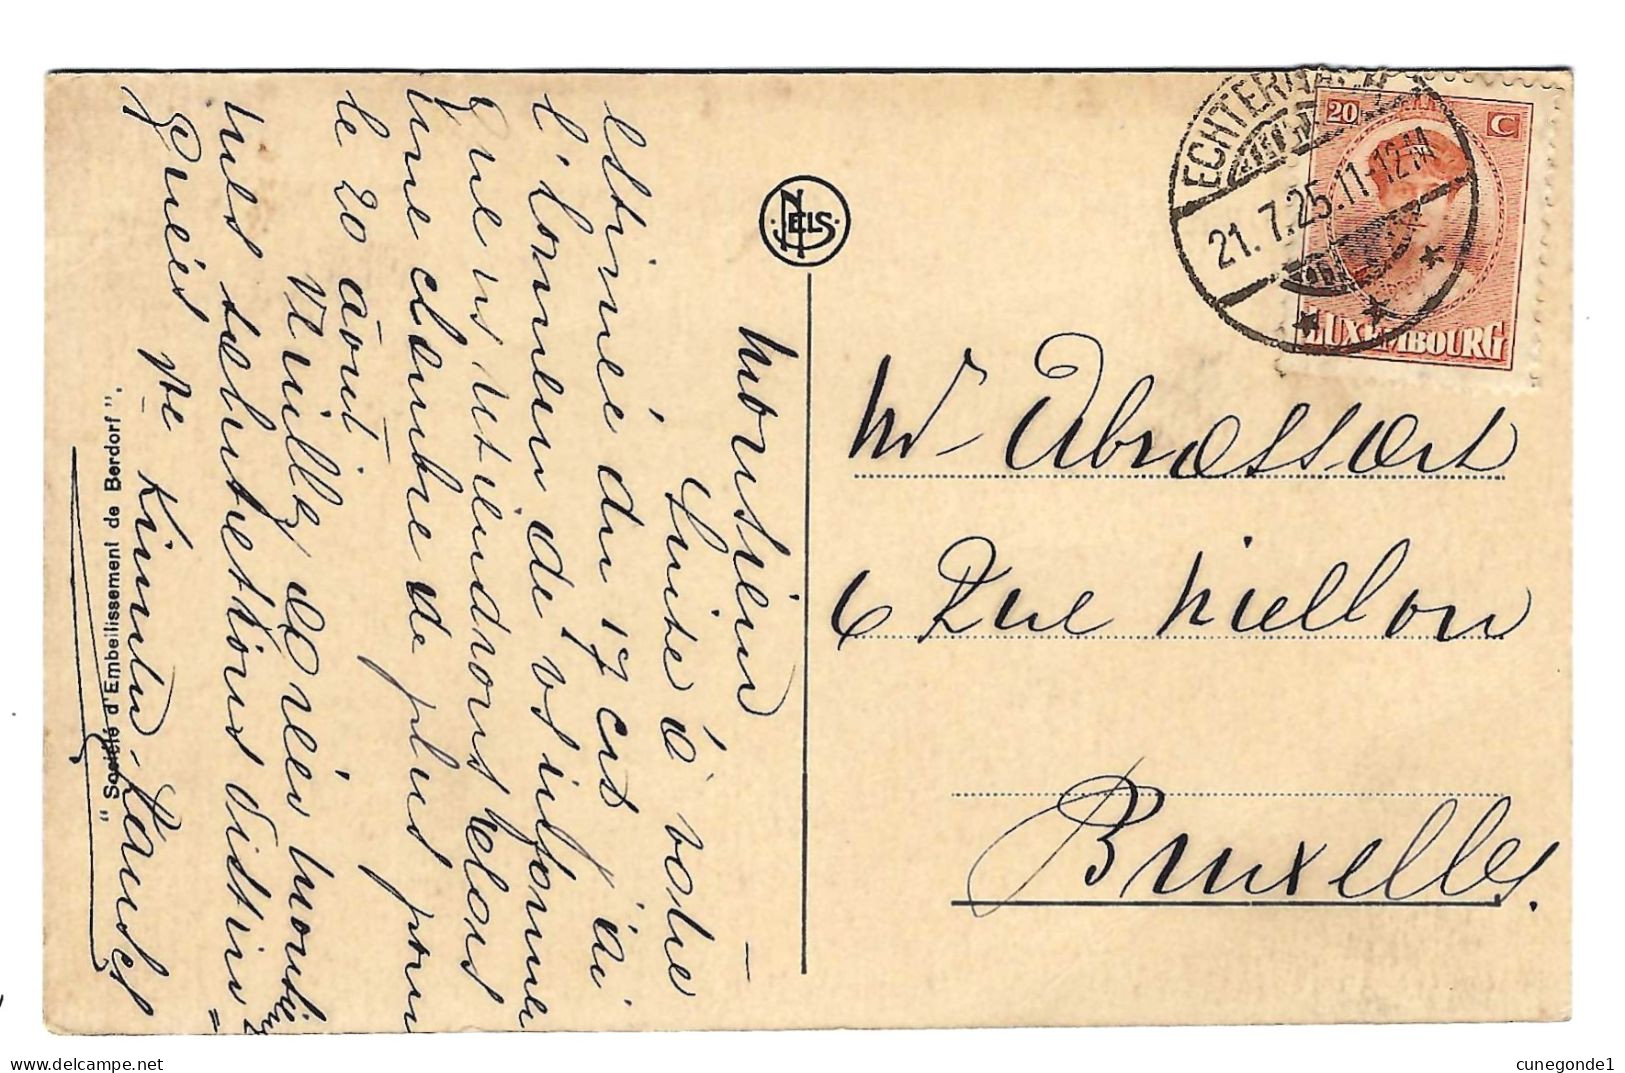 Monsieur
Suite à votre
estimée du 17 crt j'ai
l'honneur de vs informer
que ns retiendrons selons
une chambre de plus pour
le 20 août
Veuillez agréer monsieur
mes salutations distin=
guées
Ve Kimmen-
"Société d'Embellissement de Berdorf".
NELS
ECHTERNACH
21.7.25.11-12M
20
C
LUXEMBOURG
Mr Abrassart
6 Rue Niellon
Bruxelles.
cunegonde1